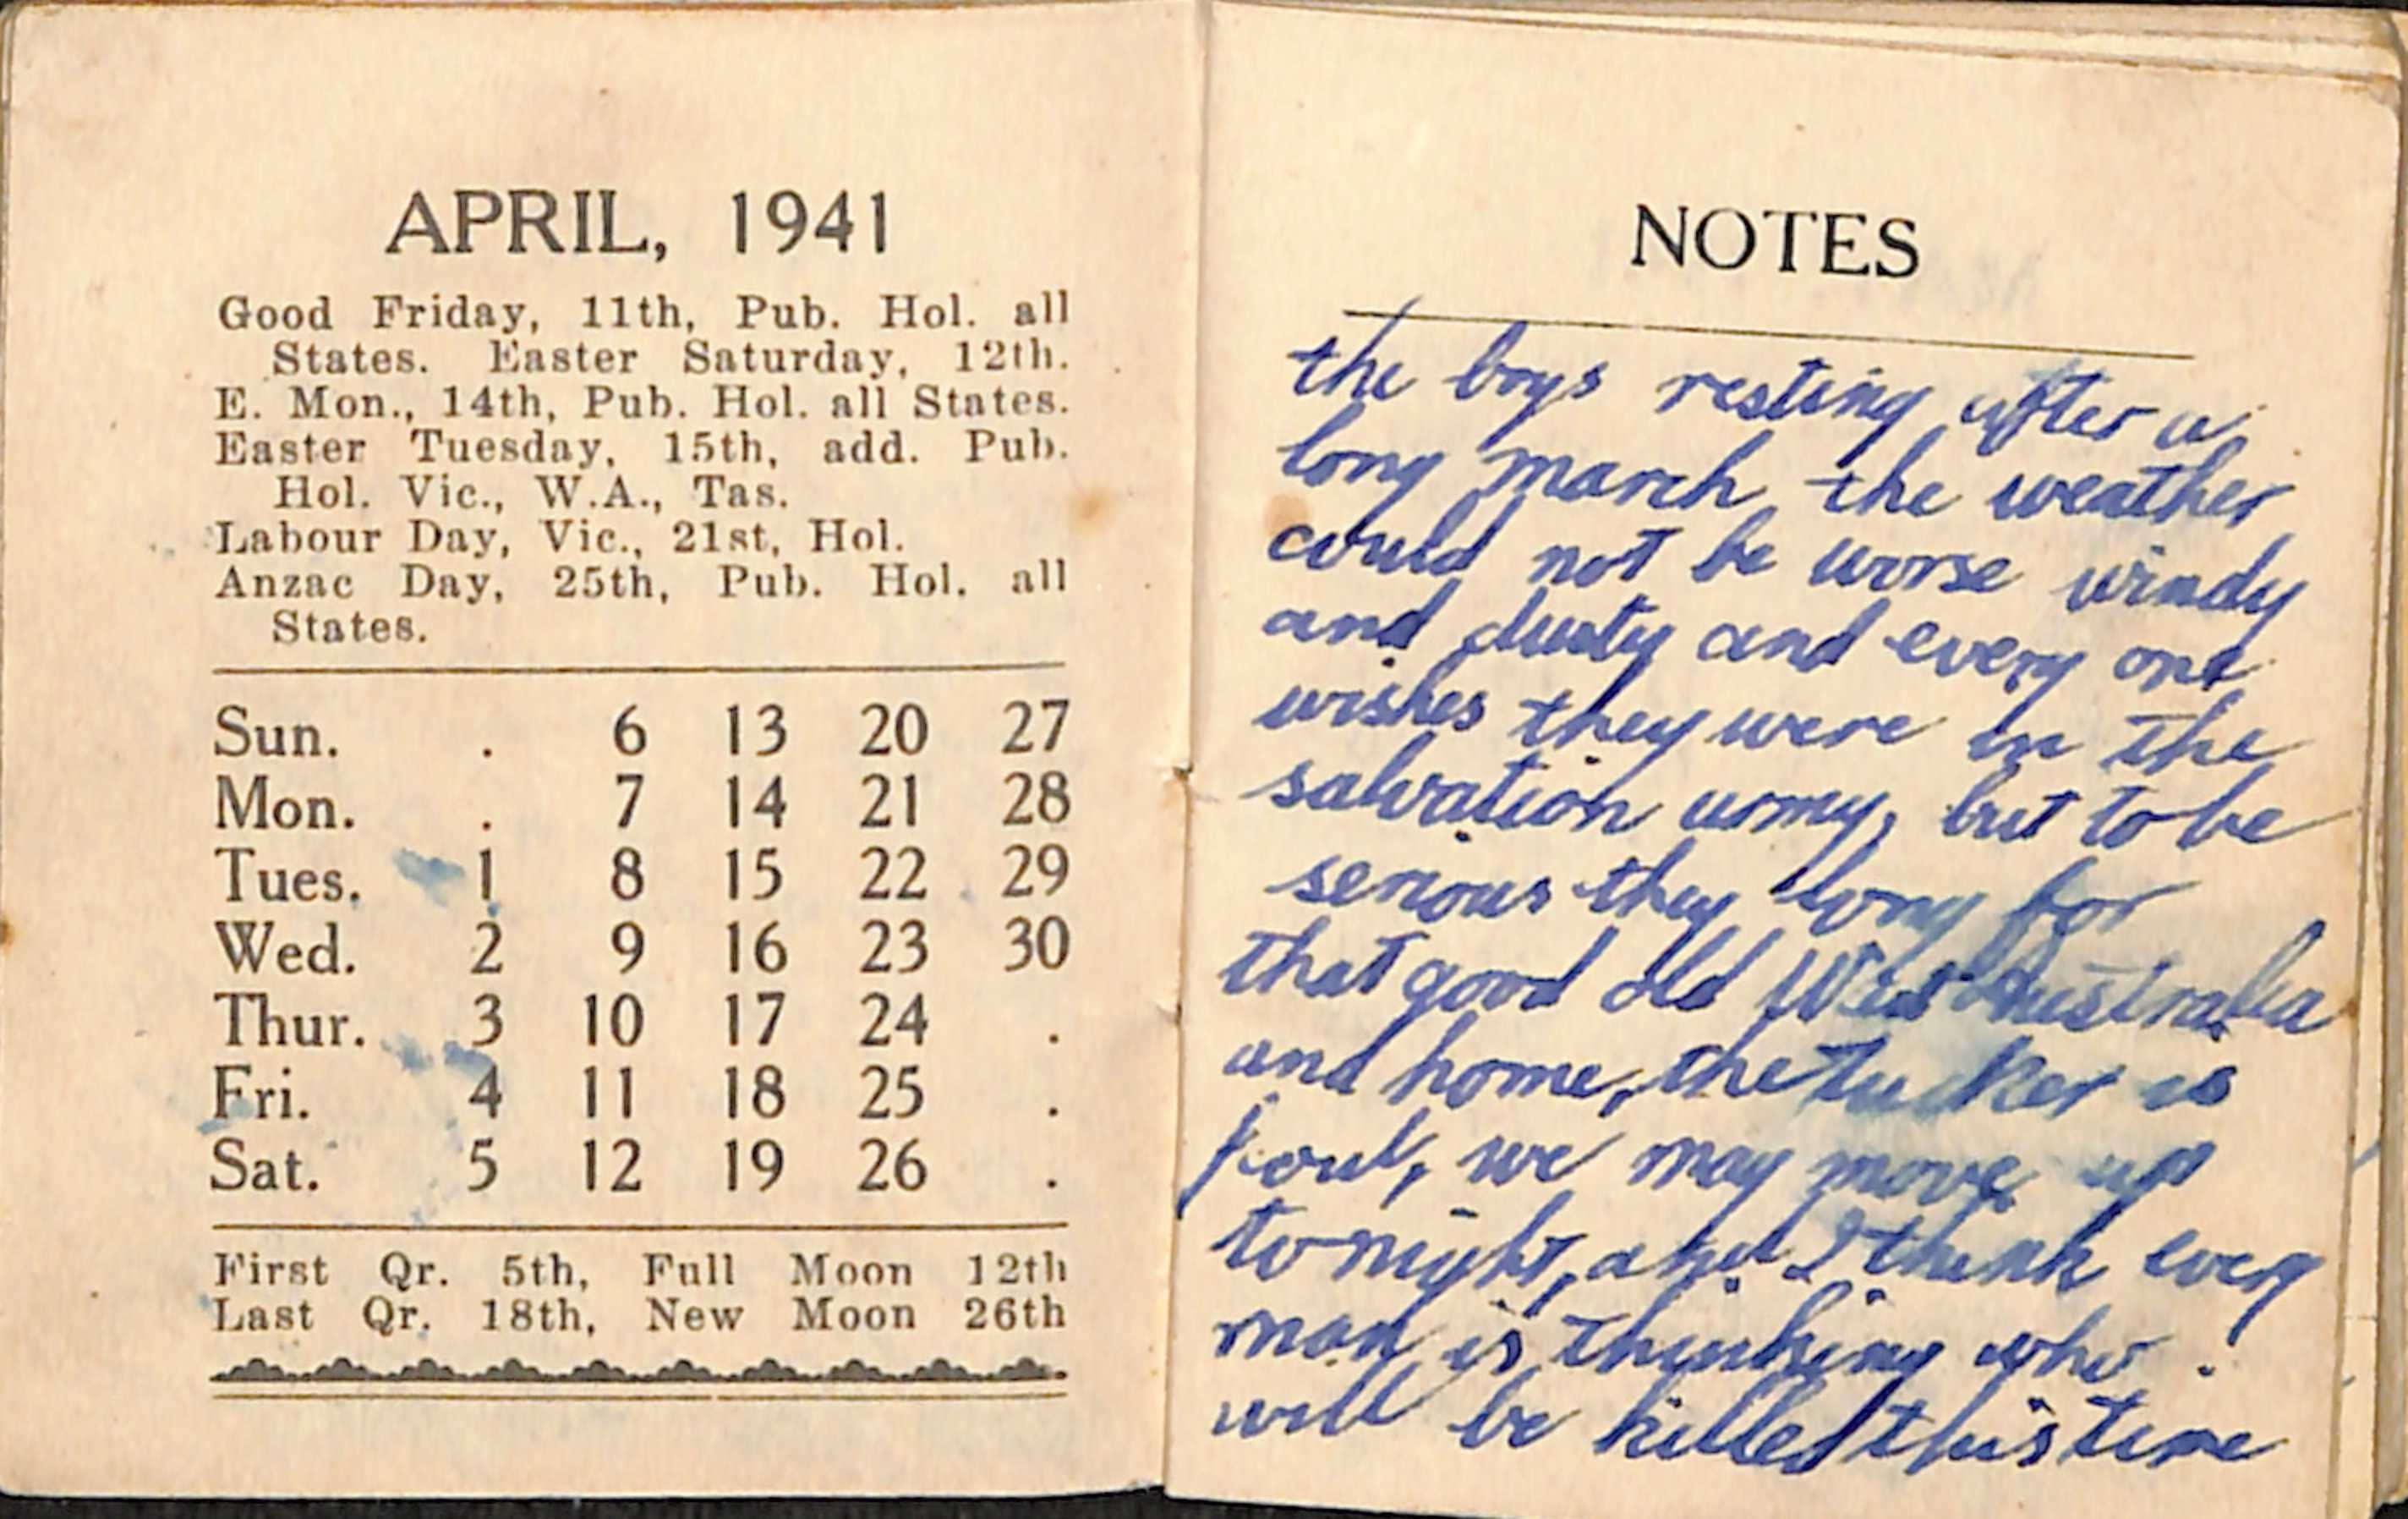 APRIL, 1941
Good Friday, 11th, Pub. Hol. all
States. Easter Saturday, 12th.
E. Mon., 14th, Pub. Hol. all States.
Easter Tuesday, 15th, add. Pub.
Hol. Vic., W.A., Tas.
Labour Day, Vic., 21st, Hol.
Anzac Day, 25th, Pub. Hol. all
States.
Sun. . 6 13 20 27
Mon. . 7 14 21 28
Tues. 1 8 15 22 29
Wed. 2 9 16 23 30
Thur. 3 10 17 24 .
Fri. 4 11 18 25 .
Sat. 5 12 19 26 .
First Qr. 5th, Full Moon 12th
Last Qr. 18th, New Moon 26th
NOTES
the boys resting after a
long march, the weather
could not be worse windy
and dusty and every one
wishes they were in the
salvation army, but to be
serious they long for
that good old West Australia
and home, the tucker is
foul, we may move up
to night, and I think every
man is thinking who
will be killed this time